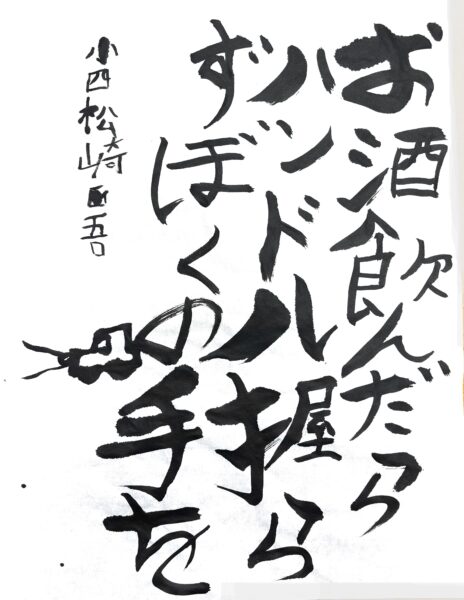 お酒飲んだら
ハンドル握ら
ずぼくの手を
小四松崎
吾